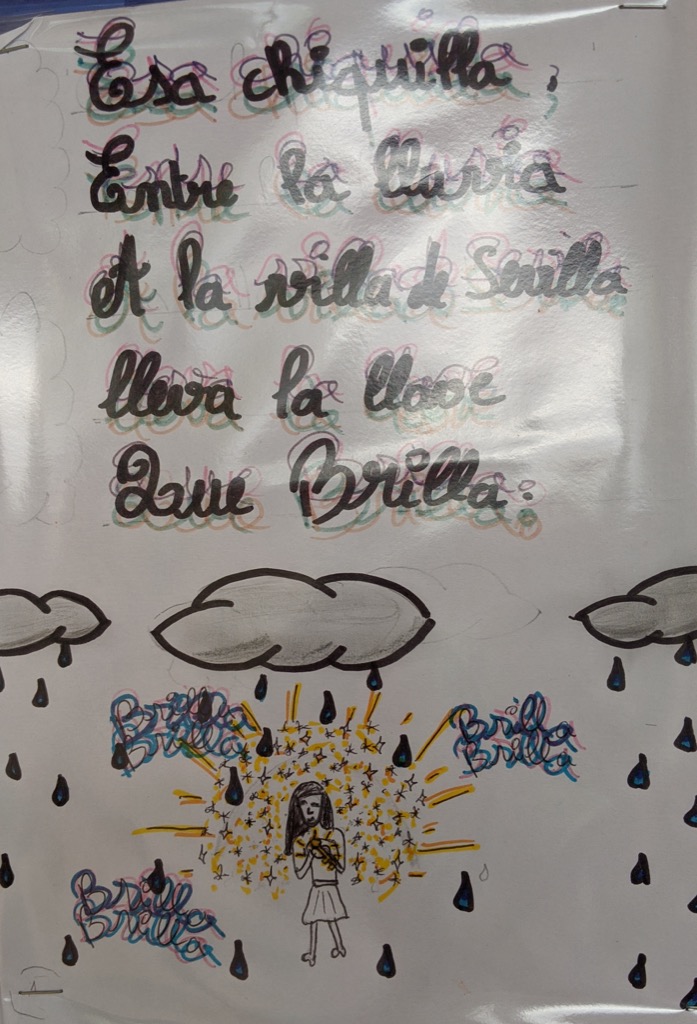 Esa chiquilla,
Entre la lluvia
A la villa de Sevilla
lleva la llave
Que Brilla.
Brilla Brilla
Brilla Brilla
Brilla Brilla
Brilla Brilla
1